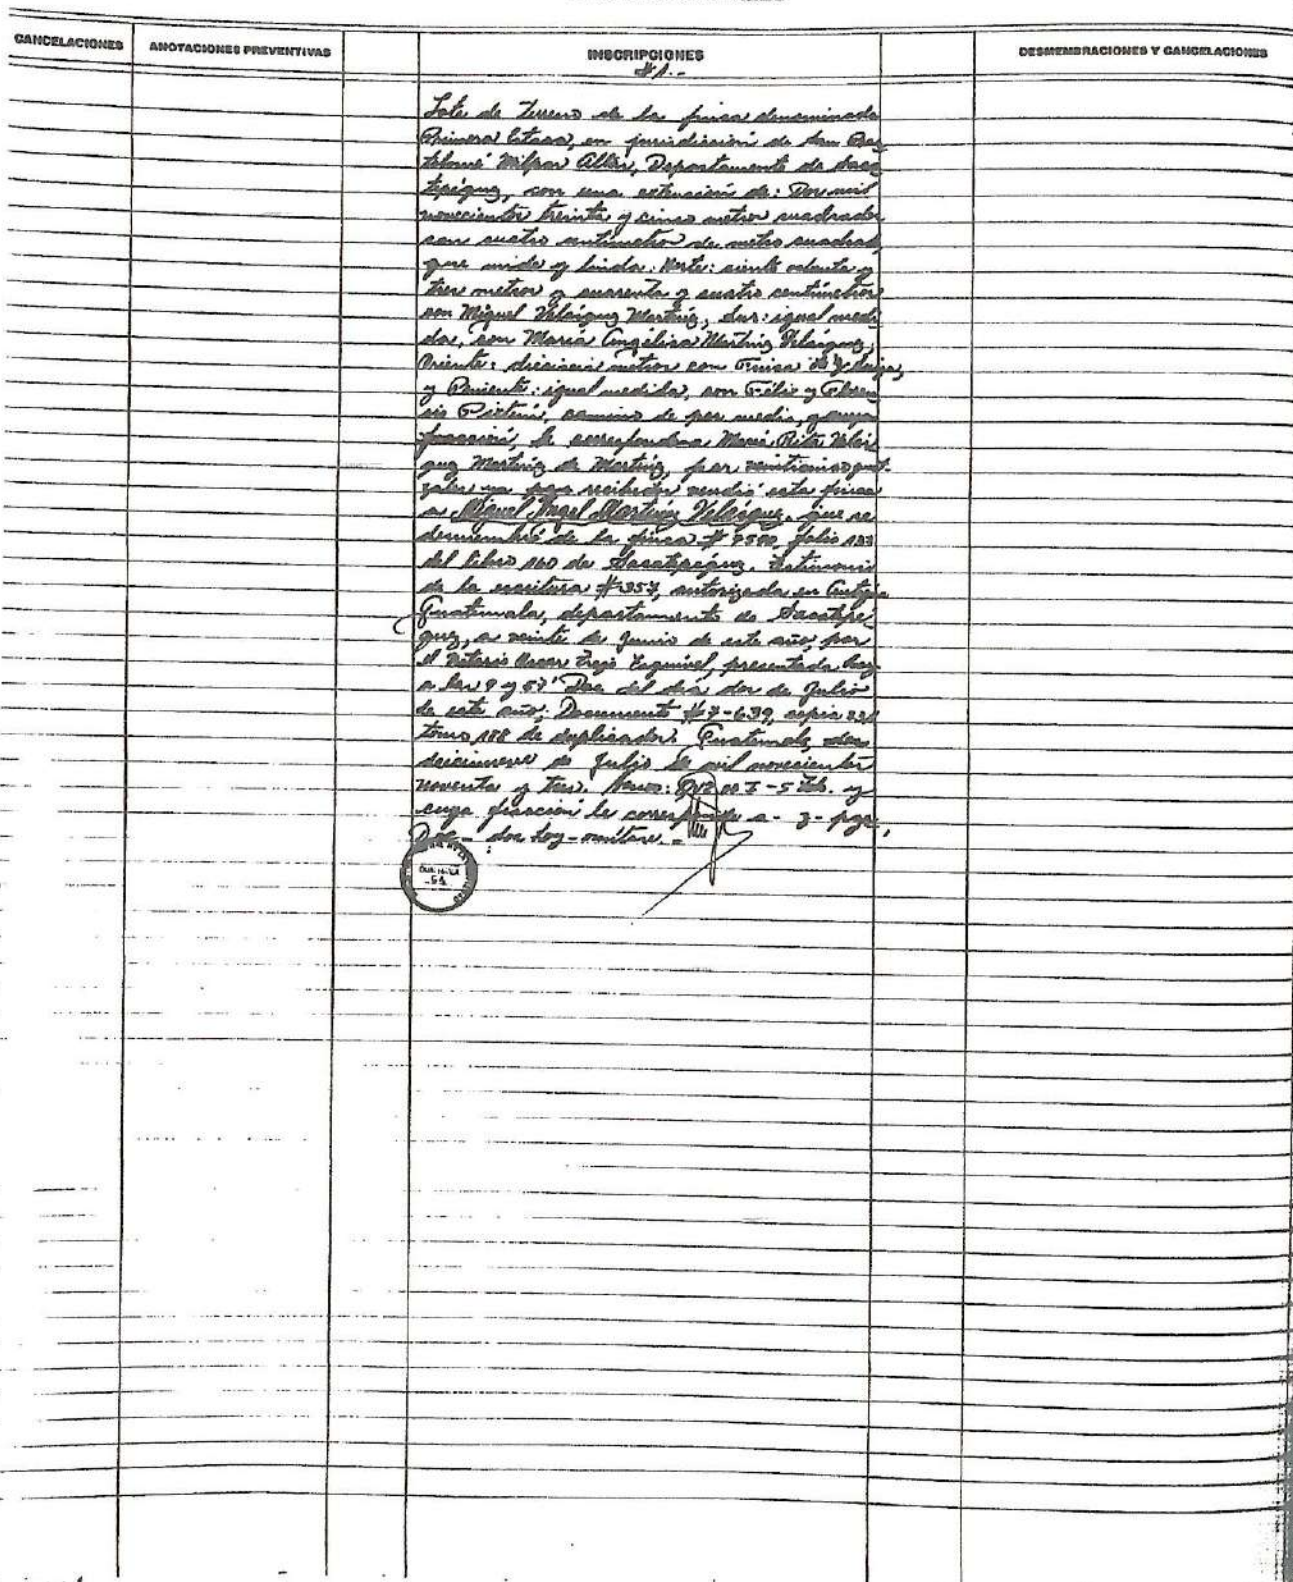 CANCELACIONES
ANOTACIONES PREVENTIVAS
INSCRIPCIONES
DESMEMBRACIONES Y CANCELACIONES
#1.-
Lote de Terreno de la finca denominada
Primera en jurisdicción de San Bar
tolomé Milpas Altas, Departamento de Saca
tepéquez, con una extensión de: Dos mil
novecientos treinta y cinco metros cuadrados
con cuatro centímetros de metro cuadrado,
que mide y linda: Norte: ciento ochenta y
tres metros y cuarenta y cuatro centímetros
con Miguel Velásquez Martínez, Sur: igual medi
da, con María Angélica Martínez Velásquez;
Oriente: dieciseis metros con
y Poniente: igual medida, con Félix y Floren
cio camino de por medio, y cuya
fracción, le corresponde a María Rita Velás
quez Martínez de Martínez, por veinticinco quet
zales ya recibidos vendió esta finca
a Miguel Angel Martínez Velásquez. que se
desmembró de la finca # folio 123
del libro 160 de Sacatepéquez. Testimonio
de la escritura #357, autorizada en Antigua
Guatemala, departamento de Sacatepé
quez, a veinte de Junio de este año, por
el Notario Oscar Trejo Esquivel, presentada hoy
a las 9 y 57' Doc del día dos de Julio
de este año; Documento #7-639, copia
tomo 188 de duplicados. Guatemala,
diecinueve de Julio de mil novecientos
noventa y tres. - 5 y
cuya fracción le corresponde a - y - pago,
Doc - dos hoy - omítase. -